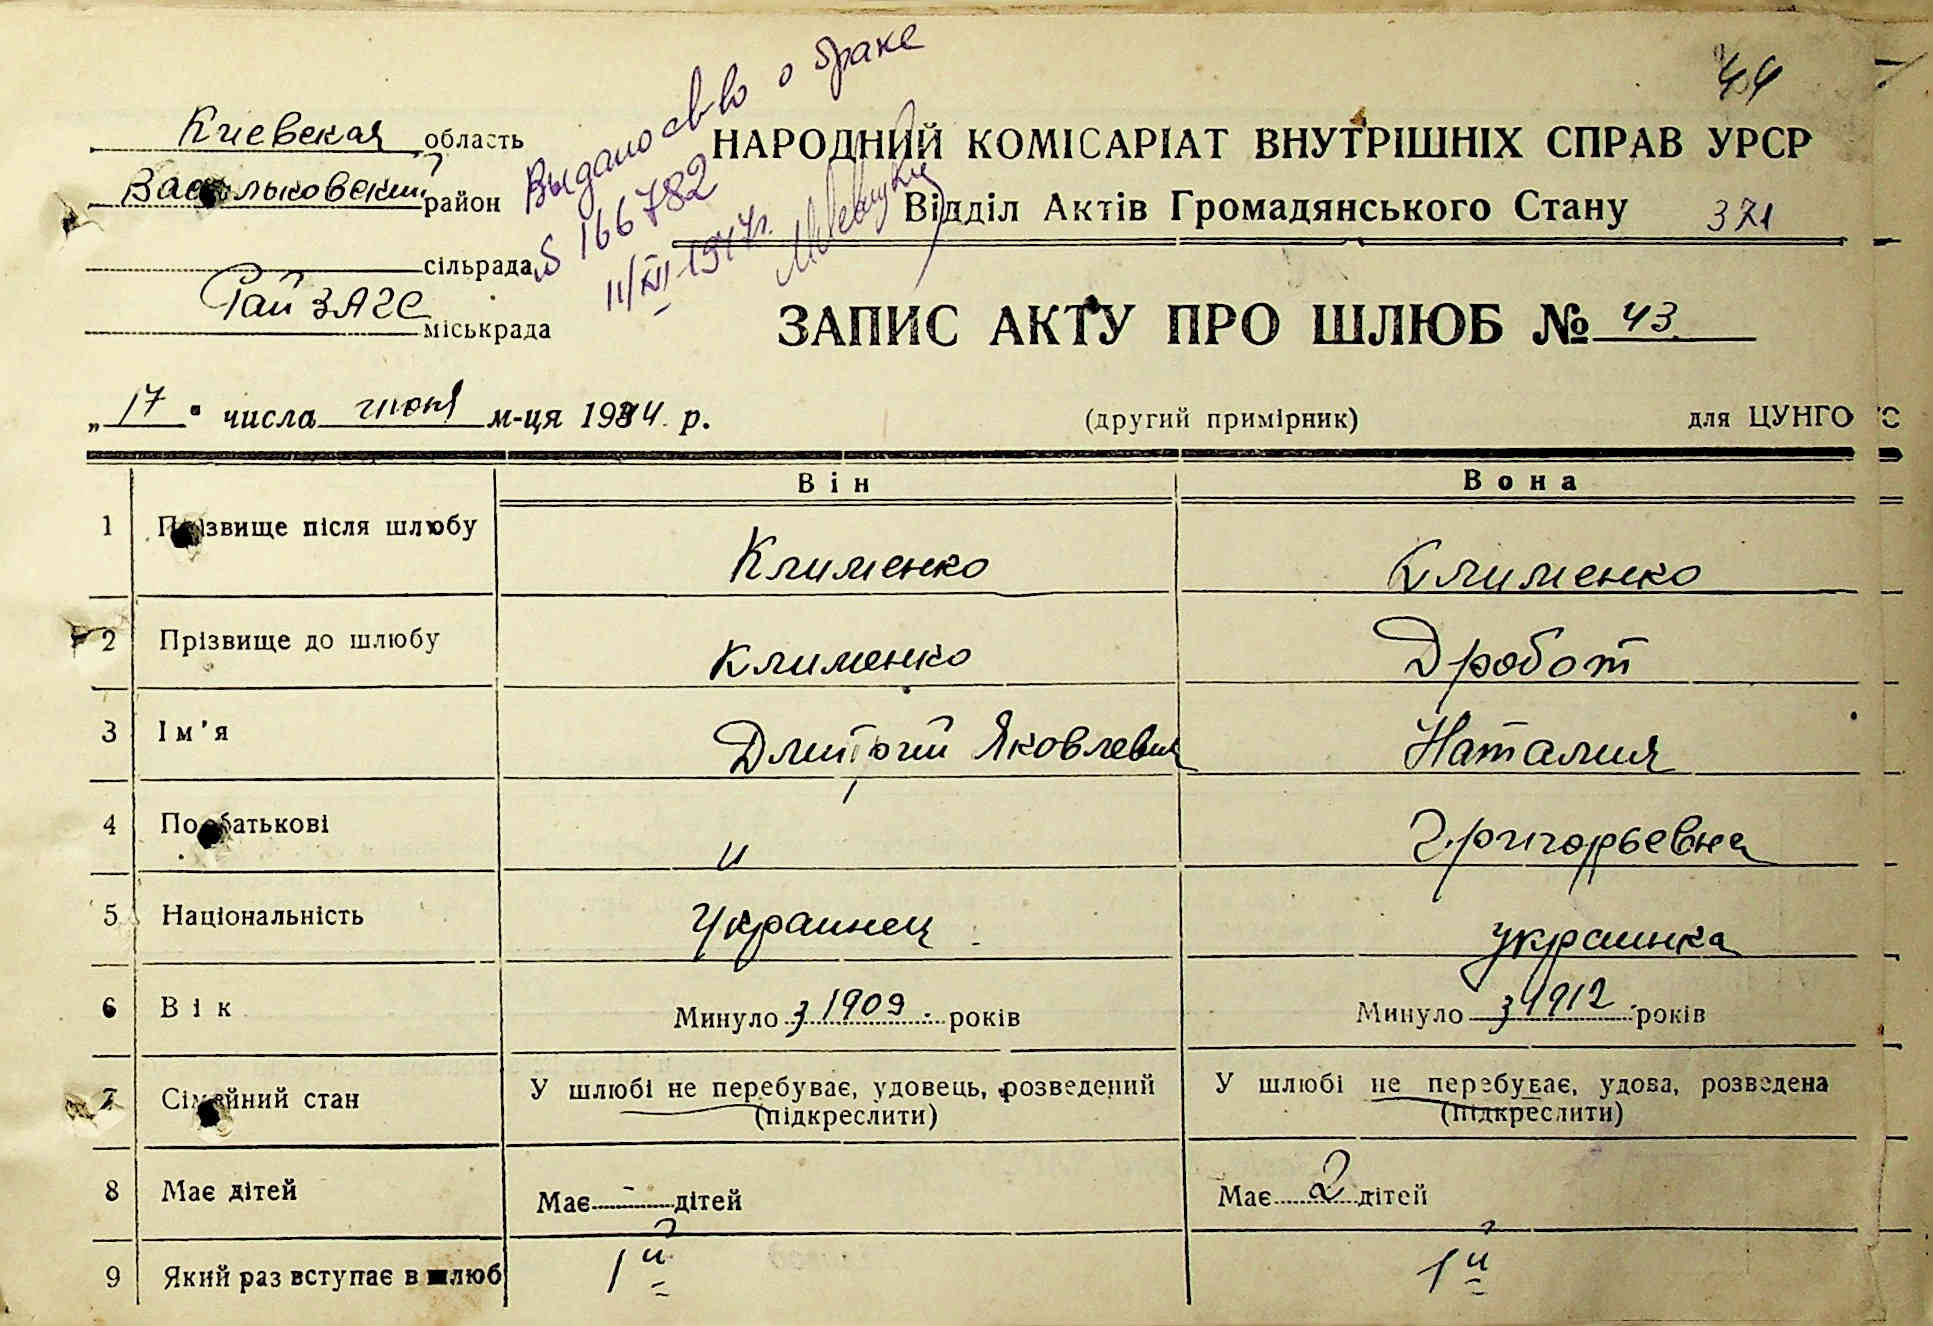 44
Киевская область
Васильковский район
сільрада
Рай ЗАГС міськрада
Выдано св-во о браке
№ 166782
11/XII-1947г.
НАРОДНИЙ КОМІСАРІАТ ВНУТРІШНІХ СПРАВ УРСР
Відділ Актів Громадянського Стану
371
ЗАПИС АКТУ ПРО ШЛЮБ № 43
„17" числа июня м-ця 1944 р.
(другий примірник)
для ЦУНГО
Він
Вона
1 Прізвище після шлюбу Клименко Клименко
2 Прізвище до шлюбу Клименко Дробот
3 Ім'я Дмитрий Яковлевич Наталия
4 По батькові и Григорьевна
5 Національність Украинец украинка
6 Вік Минуло з 1909 років Минуло з 1912 років
7 Сімейний стан У шлюбі не перебуває, удовець, розведений (підкреслити) У шлюбі не перебуває, удова, розведена (підкреслити)
8 Має дітей Має - дітей Має 2 дітей
9 Який раз вступає в шлюб 1й 1й